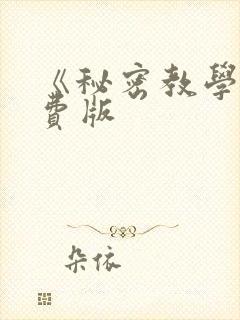 《秘密教學
費版
朵依